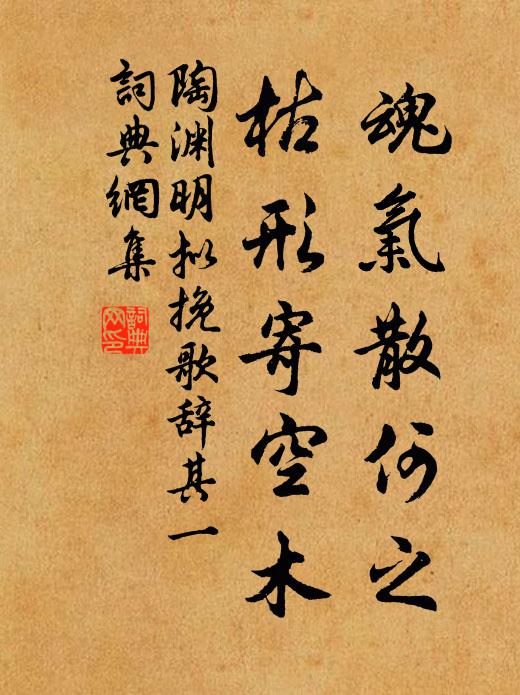 魂氣散何之
枯形寄空木
陶渊明拟挽歌辞其一
詞典網集
詞典網印